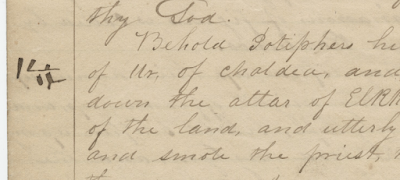 thy God.
Behold Potiphers he
of Ur, of chaldea, and
down the altar of Elkk
of the land, and utterly
and smote the priest,